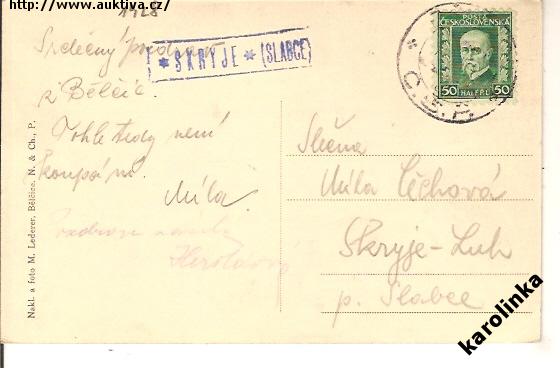 http://www.auktiva.cz/
1928
Srdečný pozdrav
z Bělčic.
Tohle tedy není
koupání.
Míla.
* SKRYJE * (SLABCE)
POŠTA
ČESKOSLOVENSKÁ
50 HALÉŘŮ 50
Č.S.R.
Slečna
Míla Čechová
Skryje-Luh
p. Slabce
Nakl. a foto M. Lederer, Bělčice, N. & Ch., P.
karolinka